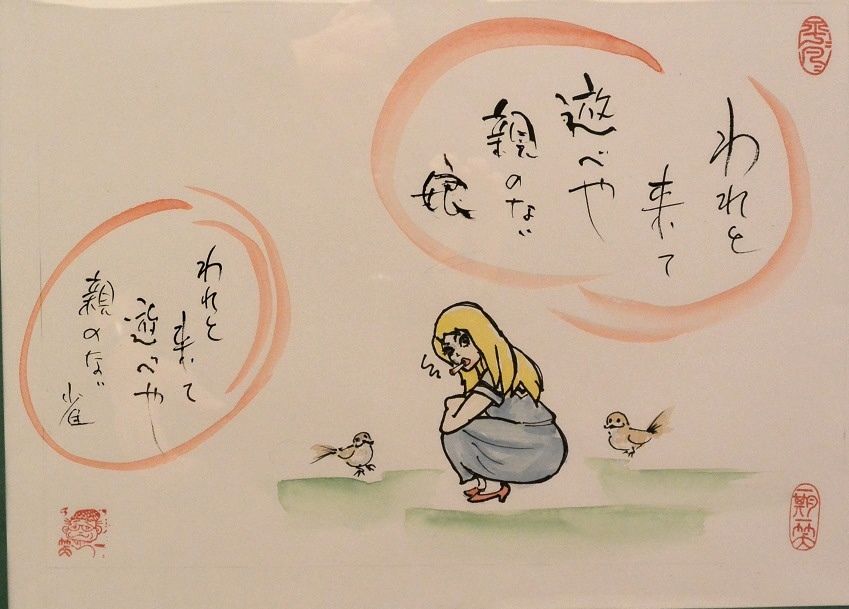 われと
来て
遊べや
親のない
娘
われと
来て
遊べや
親のない
雀
一期一笑